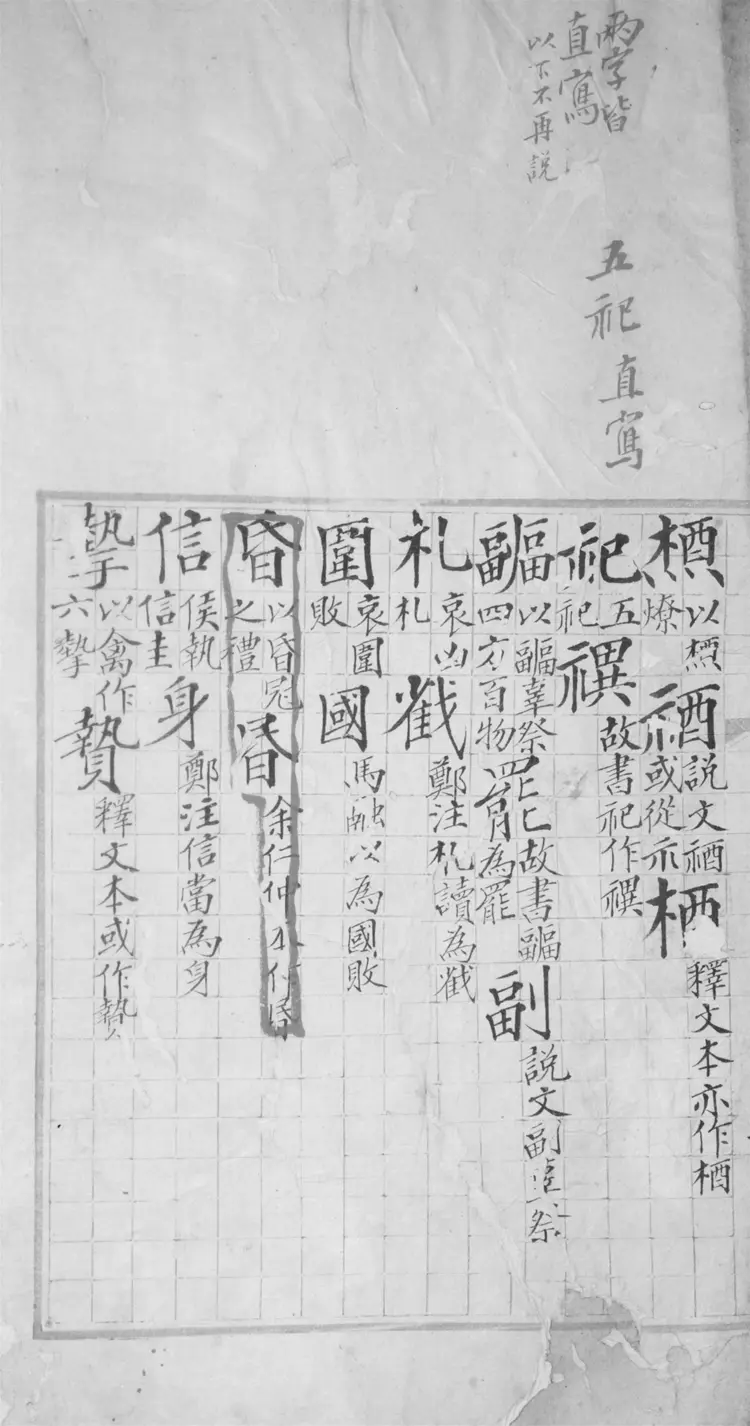 兩字皆
直寫
以下不再説
五祀直寫
槱以槱燎禉説文禉或從示梄釋文本亦作梄
祀五祀禩故書祀作禩
疈以疈辜祭四方百物罷故書疈為罷副説文副祭
札哀凶札截鄭注札讀為截
圍哀圍敗國馬融以為國敗
昏以昏冠之禮昬余仁仲本作昬
信侯執信圭身鄭注信當為身
摯以禽作六摯贄釋文本或作贄